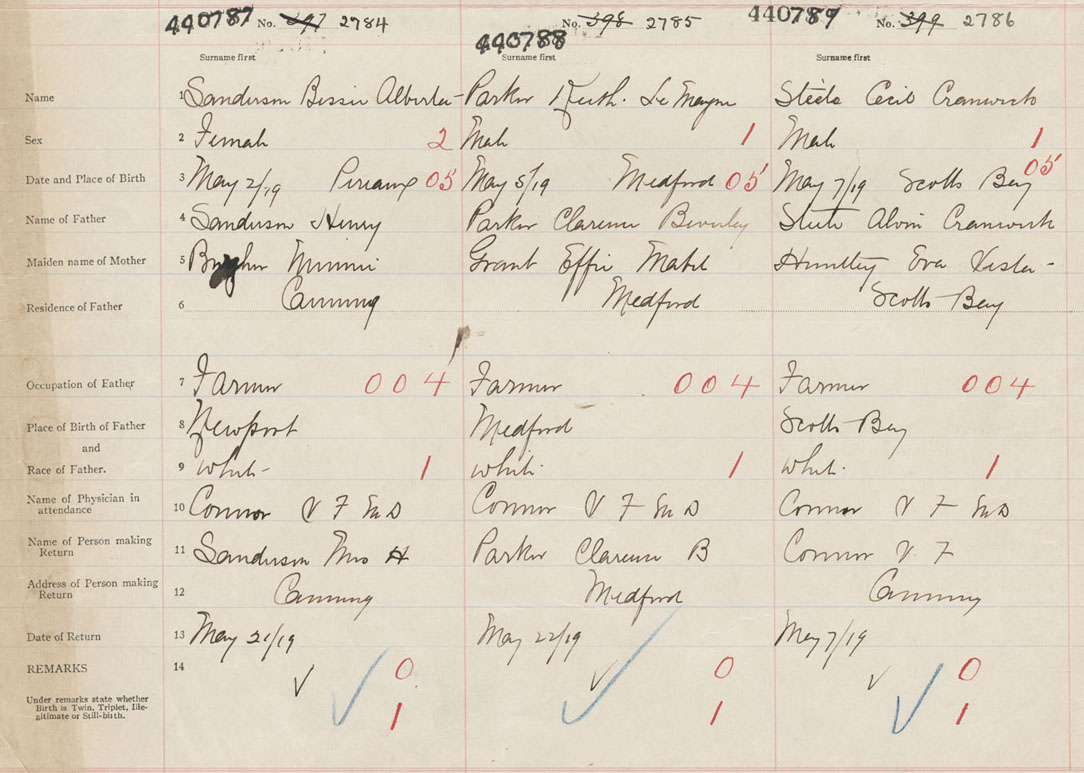 440787 No. 397 2784 440788 No. 398 2785 440789 No. 399 2786
Surname first Surname first Surname first
Name 1 Sanderson Bessie Alberta Parker Keith Le Mayne Steele Cecil Cranwick
Sex 2 Female 2 Male 1 Male 1
Date and Place of Birth 3 May 2/19 Pereaux 05 May 5/19 Medford 05 May 7/19 Scotts Bay 05
Name of Father 4 Sanderson Henry Parker Clarence Beverley Steele Alvin Cranwick
Maiden name of Mother 5 Minnie Grant Effie Mabel Huntley Eva Vesta
Residence of Father 6 Canning Medford Scotts Bay
Occupation of Father 7 Farmer 004 Farmer 004 Farmer 004
Place of Birth of Father 8 Newport Medford Scotts Bay
and
Race of Father. 9 white 1 white 1 white 1
Name of Physician in attendance 10 Connor V F M D Connor V F M D Connor V F M D
Name of Person making Return 11 Sanderson Mrs H Parker Clarence B Connor V. F
Address of Person making Return 12 Canning Medford Canning
Date of Return 13 May 21/19 May 22/19 May 7/19
REMARKS 14 0 0 0
Under remarks state whether
Birth is Twin, Triplet, Ille-
gitimate or Still-birth. 1 1 1